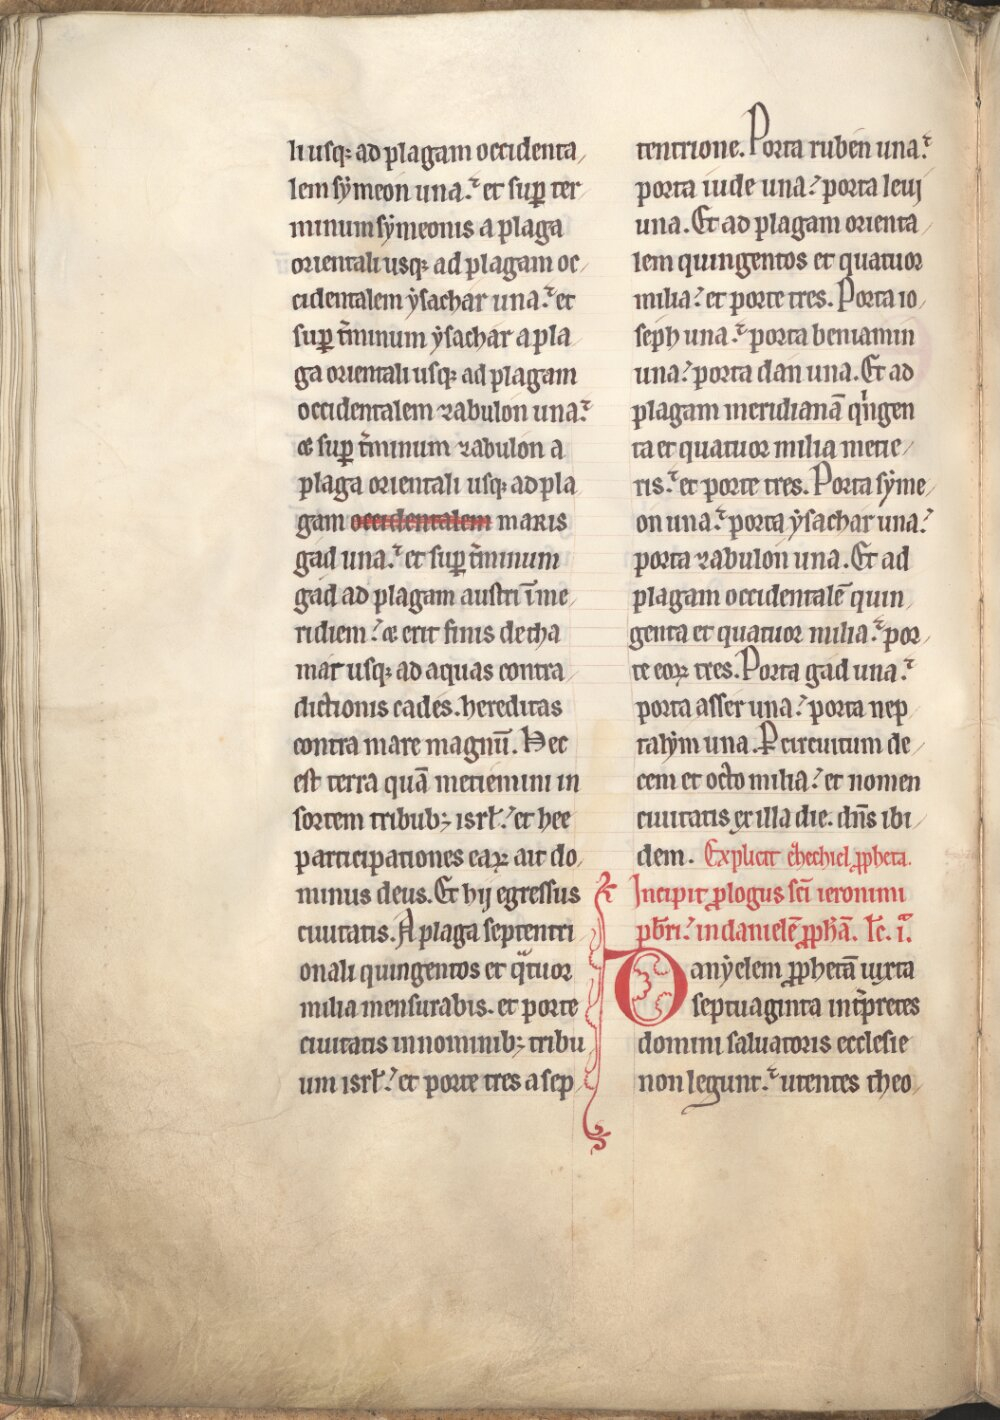 li usq; ad plagam occidenta/
lem sẏmeón una.ᷓ et sup̱ ter
minum sẏmeonis a plaga
orientali usq; ad plagam oc/
cidentalem ẏsachár una.ᷓ et
sup̱ t̄minum ẏsachár a pla
ga orientali usq; ad plagam
occidentalem zabulón una.ᷓ
& sup̱ t̄minum zabulón a
plaga orientali usq; ad pla
gam occidentalem maris
gád una.ᷓ et sup̱ t̄minum
gád ad plagam austri ī me/
ridiem.ᷓ & erit finis de tha
már usq; ad aquas contra/
dictionis cadés. hereditas
contra mare magnū. Hec
est terra quā metiemini in
sortem tribub; isrł.ᷓ et hee
participationes eaꝝ ait do/
minus deus. Et hij egressus
ciuitatis. A plaga septentri
onali quingentos et q̈tuor
milia mensurabis. et porte
ciuitatis in nominib; tribu
um isrł.ᷓ et porte tres a sep/
tentrione. Porta rubén una.ᷓ
porta iude una.ᷓ porta leuj
una. Et ad plagam orienta/
lem quingentos et quatuor
milia.ᷓ et porte tres. Porta io/
seph una.ᷓ porta beniamin
una.ᷓ porta dán una. Et ad
plagam meridianā qͥngen
ta et quatuor milia metie/
ris.ᷓ et porte tres. Porta sẏme/
ón una.ᷓ porta ẏsachár una.ᷓ
porta zabulón una. Et ad
plagam occidentalē quin/
genta et quatuor milia.ᷓ por/
te eoꝝ tres. Porta gád una.ᷓ
porta assér una.ᷓ porta nep
talẏm una. P̱ circuitum de/
cem et octo milia.ᷓ et nomen
ciuitatis ex illa die. dn̄s ibi/
dem. Explicit ehechiel ꝓpheta.
Incipit ꝓlogus sc̄i ieronimi
pb̄ri.ᷓ in danielē ꝓph̄ā. Ꝉc. i.ᵃ
Danẏelem ꝓphetā iuxta
septuaginta int̄pretes
domini saluatoris ecclesie
non legunt.ᷓ utentes theo/